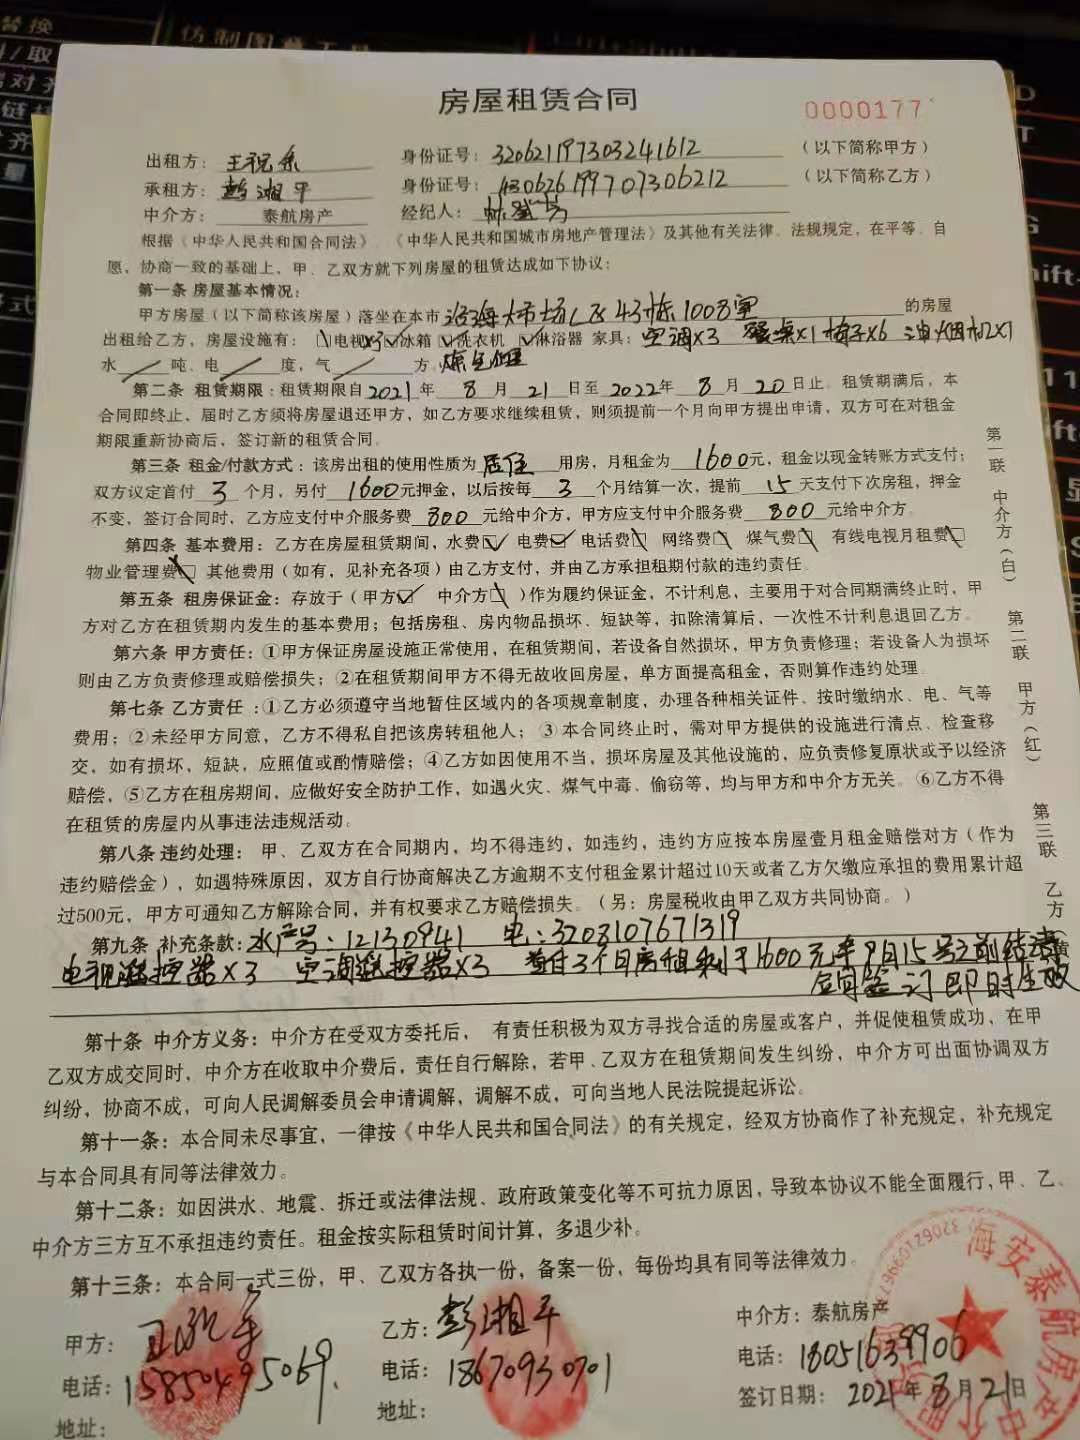 替换
仿制图章工具
房屋租赁合同
0000177
出租方： 身份证号：320621197303241612（以下简称甲方）
承租方：彭湘平 身份证号：430626199707306212（以下简称乙方）
中介方：泰航房产 经纪人：
根据《中华人民共和国合同法》、《中华人民共和国城市房地产管理法》及其他有关法律、法规规定，在平等、自
愿，协商一致的基础上，甲、乙双方就下列房屋的租赁达成如下协议：
第一条 房屋基本情况：
甲方房屋（以下简称该房屋）落坐在本市 沿海大市场 43栋1008室 的房屋
出租给乙方，房屋设施有：电视x3 冰箱 洗衣机 淋浴器 家具：空调x3 餐桌x1 椅子x6 油烟机x1
水 吨、电 度，气 方。
第二条 租赁期限：租赁期限自2021年8月21日至2022年8月20日止。租赁期满后，本
合同即终止，届时乙方须将房屋退还甲方，如乙方要求继续租赁，则须提前一个月向甲方提出申请，双方可在对租金
期限重新协商后，签订新的租赁合同。
第三条 租金/付款方式：该房出租的使用性质为 居住 用房，月租金为 1600元，租金以现金转账方式支付；
双方议定首付 3 个月，另付 1600元押金，以后按每 3 个月结算一次，提前 15 天支付下次房租，押金
不变，签订合同时，乙方应支付中介服务费 800 元给中介方，甲方应支付中介服务费 800 元给中介方。
第四条 基本费用：乙方在房屋租赁期间，水费 电费 电话费 网络费 煤气费 有线电视月租费
物业管理费 其他费用（如有，见补充各项）由乙方支付，并由乙方承担租期付款的违约责任。
第五条 租房保证金：存放于（甲方 中介方 ）作为履约保证金，不计利息，主要用于对合同期满终止时，甲
方对乙方在租赁期内发生的基本费用；包括房租、房内物品损坏、短缺等，扣除清算后，一次性不计利息退回乙方。
第六条 甲方责任：①甲方保证房屋设施正常使用，在租赁期间，若设备自然损坏，甲方负责修理；若设备人为损坏
则由乙方负责修理或赔偿损失；②在租赁期间甲方不得无故收回房屋，单方面提高租金，否则算作违约处理。
第七条 乙方责任：①乙方必须遵守当地暂住区域内的各项规章制度，办理各种相关证件、按时缴纳水、电、气等
费用；②未经甲方同意，乙方不得私自把该房转租他人；③本合同终止时，需对甲方提供的设施进行清点、检查移
交，如有损坏，短缺，应照值或酌情赔偿；④乙方如因使用不当，损坏房屋及其他设施的，应负责修复原状或予以经济
赔偿，⑤乙方在租房期间，应做好安全防护工作，如遇火灾、煤气中毒、偷窃等，均与甲方和中介方无关。⑥乙方不得
在租赁的房屋内从事违法违规活动。
第八条 违约处理：甲、乙双方在合同期内，均不得违约，如违约，违约方应按本房屋壹月租金赔偿对方（作为
违约赔偿金），如遇特殊原因，双方自行协商解决乙方逾期不支付租金累计超过10天或者乙方欠缴应承担的费用累计超
过500元，甲方可通知乙方解除合同，并有权要求乙方赔偿损失。（另：房屋税收由甲乙双方共同协商。）
第九条 补充条款：水户号：12130941 电：3203107671319
电视遥控器x3 空调遥控器x3 首付3个月房租剩于1600元年9月15号之前结清
合同签订即时生效
第十条 中介方义务：中介方在受双方委托后， 有责任积极为双方寻找合适的房屋或客户，并促使租赁成功、在甲
乙双方成交同时，中介方在收取中介费后，责任自行解除，若甲、乙双方在租赁期间发生纠纷，中介方可出面协调双方
纠纷，协商不成，可向人民调解委员会申请调解，调解不成，可向当地人民法院提起诉讼。
第十一条：本合同未尽事宜，一律按《中华人民共和国合同法》的有关规定，经双方协商作了补充规定，补充规定
与本合同具有同等法律效力。
第十二条：如因洪水、地震、拆迁或法律法规、政府政策变化等不可抗力原因，导致本协议不能全面履行，甲、乙、
中介方三方互不承担违约责任。租金按实际租赁时间计算，多退少补。
第十三条：本合同一式三份，甲、乙双方各执一份，备案一份，每份均具有同等法律效力。
甲方： 乙方：彭湘平 中介方：泰航房产
电话：15850495069. 电话：18670930701 电话：18051639906
地址： 地址： 签订日期：2021年8月21日
第一联 中介方（白）
第二联 甲方（红）
第三联 乙方（黄
海安泰航房产中介